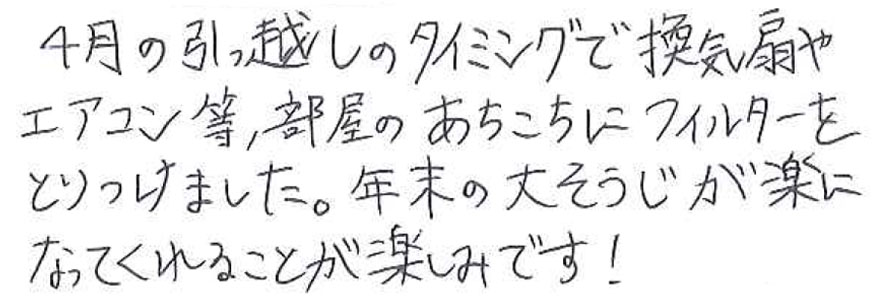 4月の引っ越しのタイミングで換気扇や
エアコン等,部屋のあちこちにフィルターを
とりつけました。年末の大そうじが楽に
なってくれることが楽しみです!